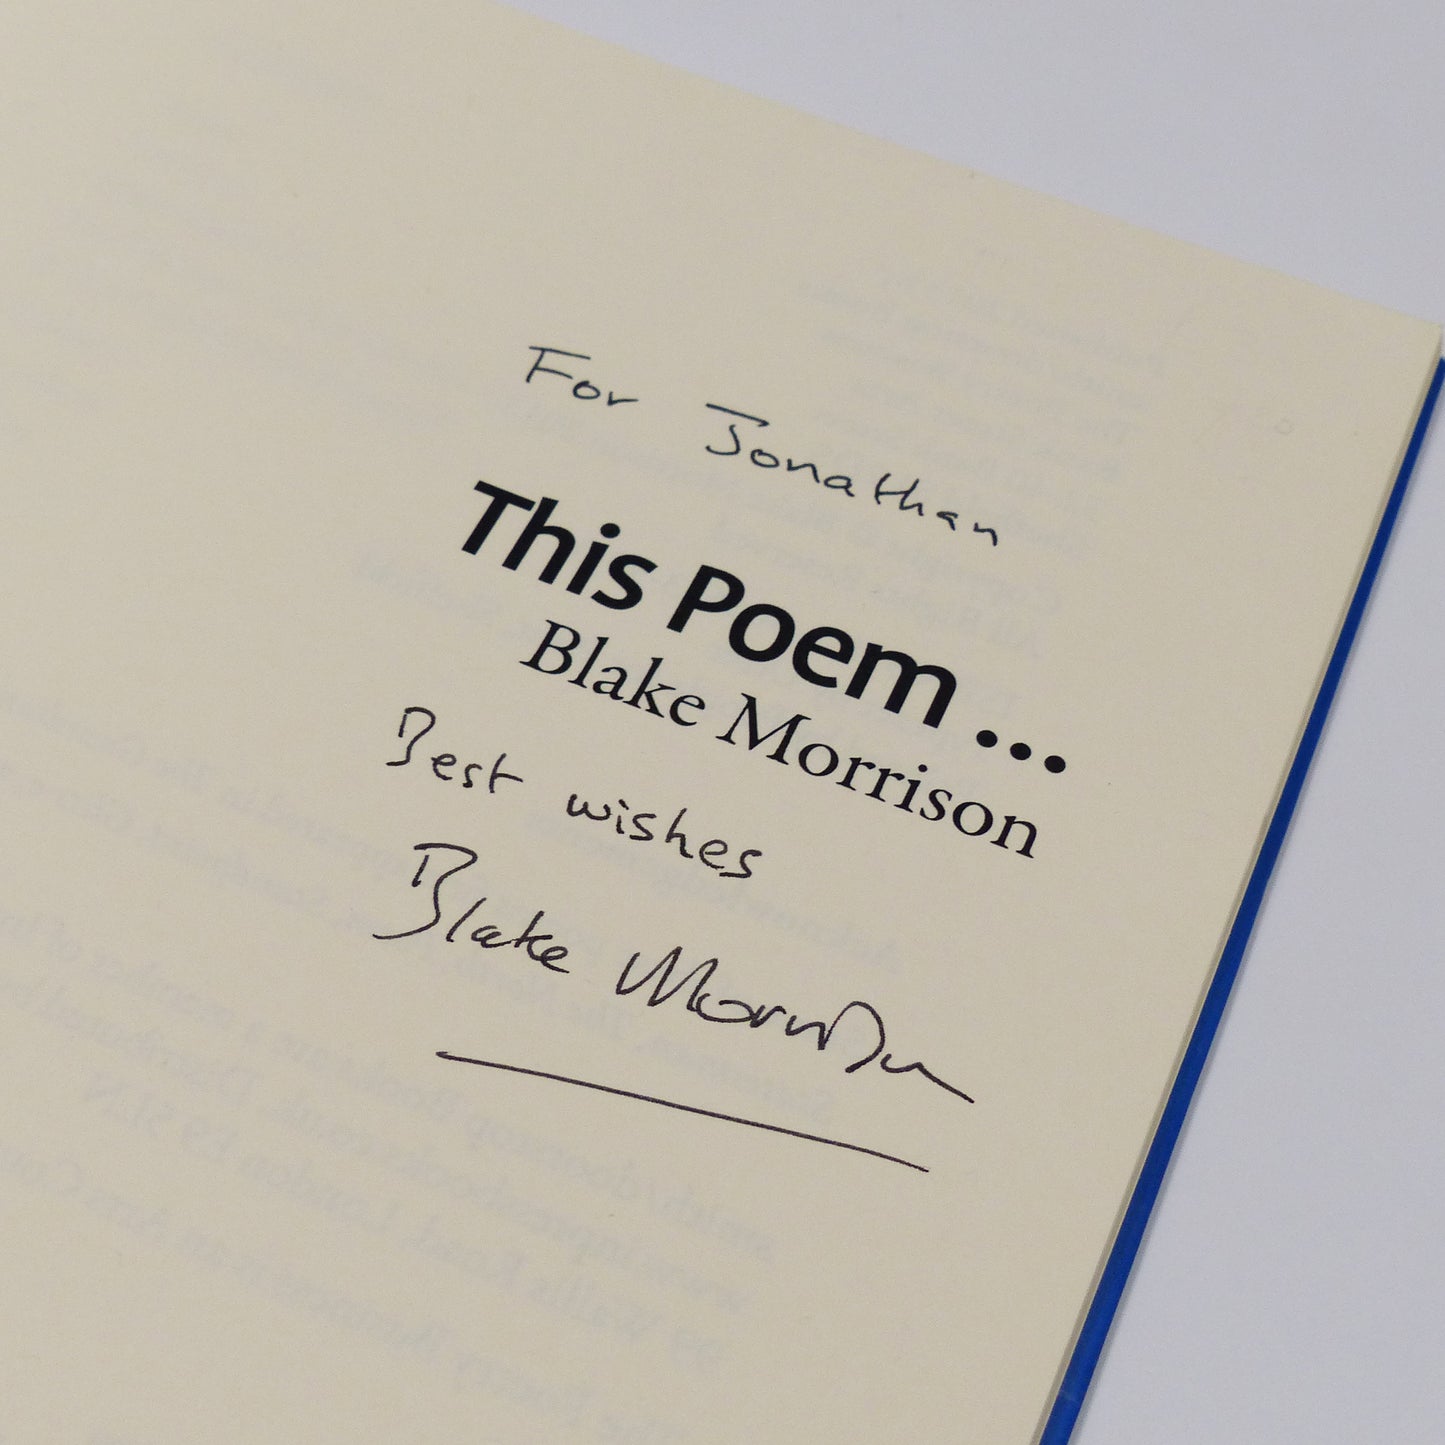 For Jonathan
This Poem ...
Blake Morrison
Best wishes
Blake Morrison